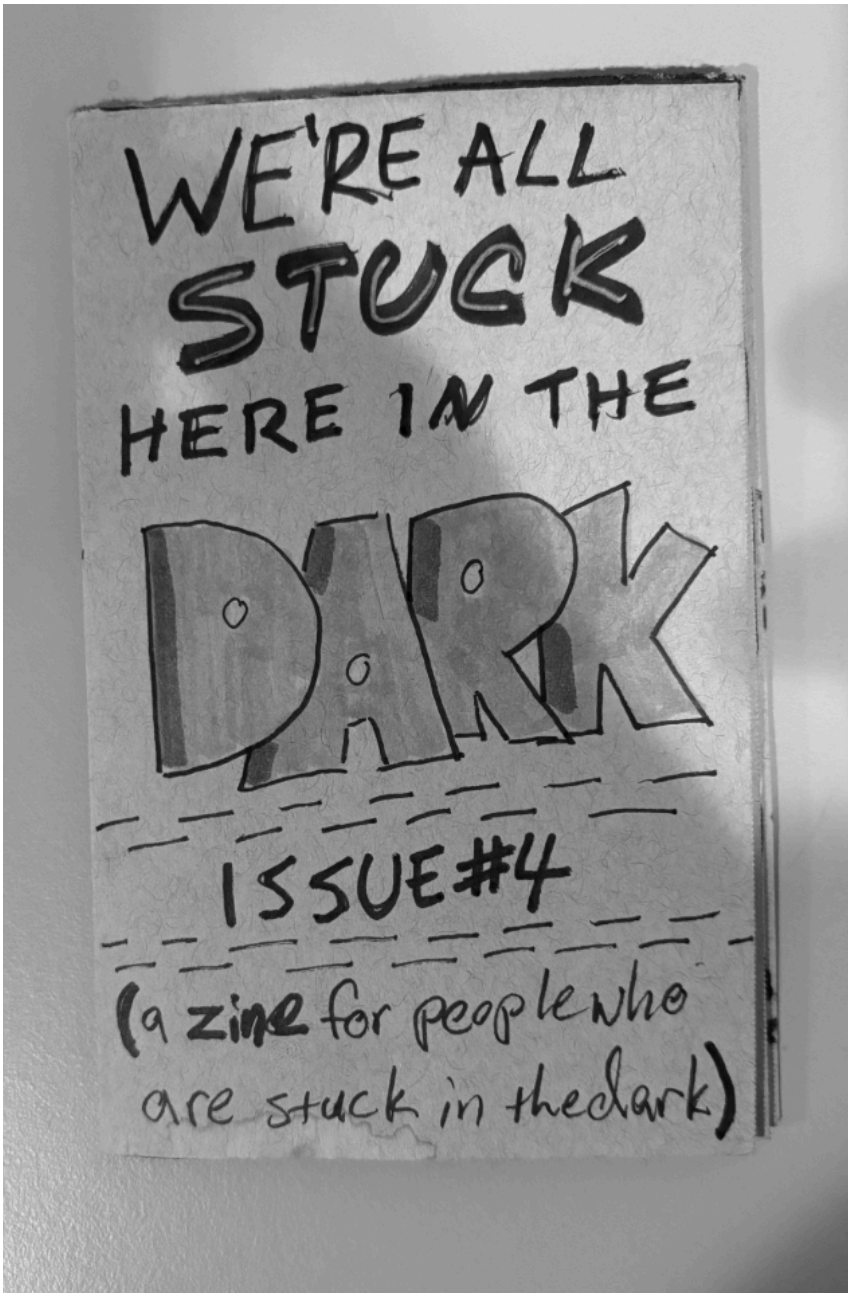 WE'RE ALL
STUCK
HERE IN THE
DARK
ISSUE #4
(a zine for people who
are stuck in the dark)